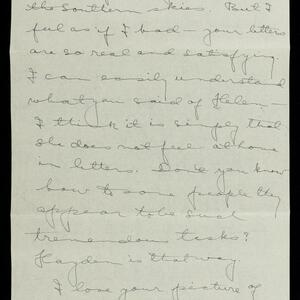 the southern skies. But I
ful as if I had — your letters
are so real and satisfying.
I can easily understand
what you said of Helen —
I think it is simply that
she does not feel at home
in letters. Don't you know
how to some people they
appear to be such
tremendous tasks?
Haydon is that way.
I love your picture of